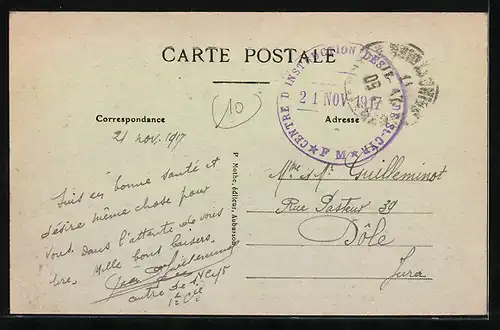 CARTE POSTALE
10
CENTRE D'INSTRUCTION
ST-CYR
★ F M ★
21 NOV. 1917
Correspondance
Adresse
21 nov. 1917
Suis en bonne santé et
désire même chose pour
vous. Dans l'attente de vous
lire. Mille bons baisers.
Guilleminot
1e Cie
P. Mothe, éditeur, Aubusson
Mme et Mr Guilleminot
Rue Pasteur 39
Dôle
Jura